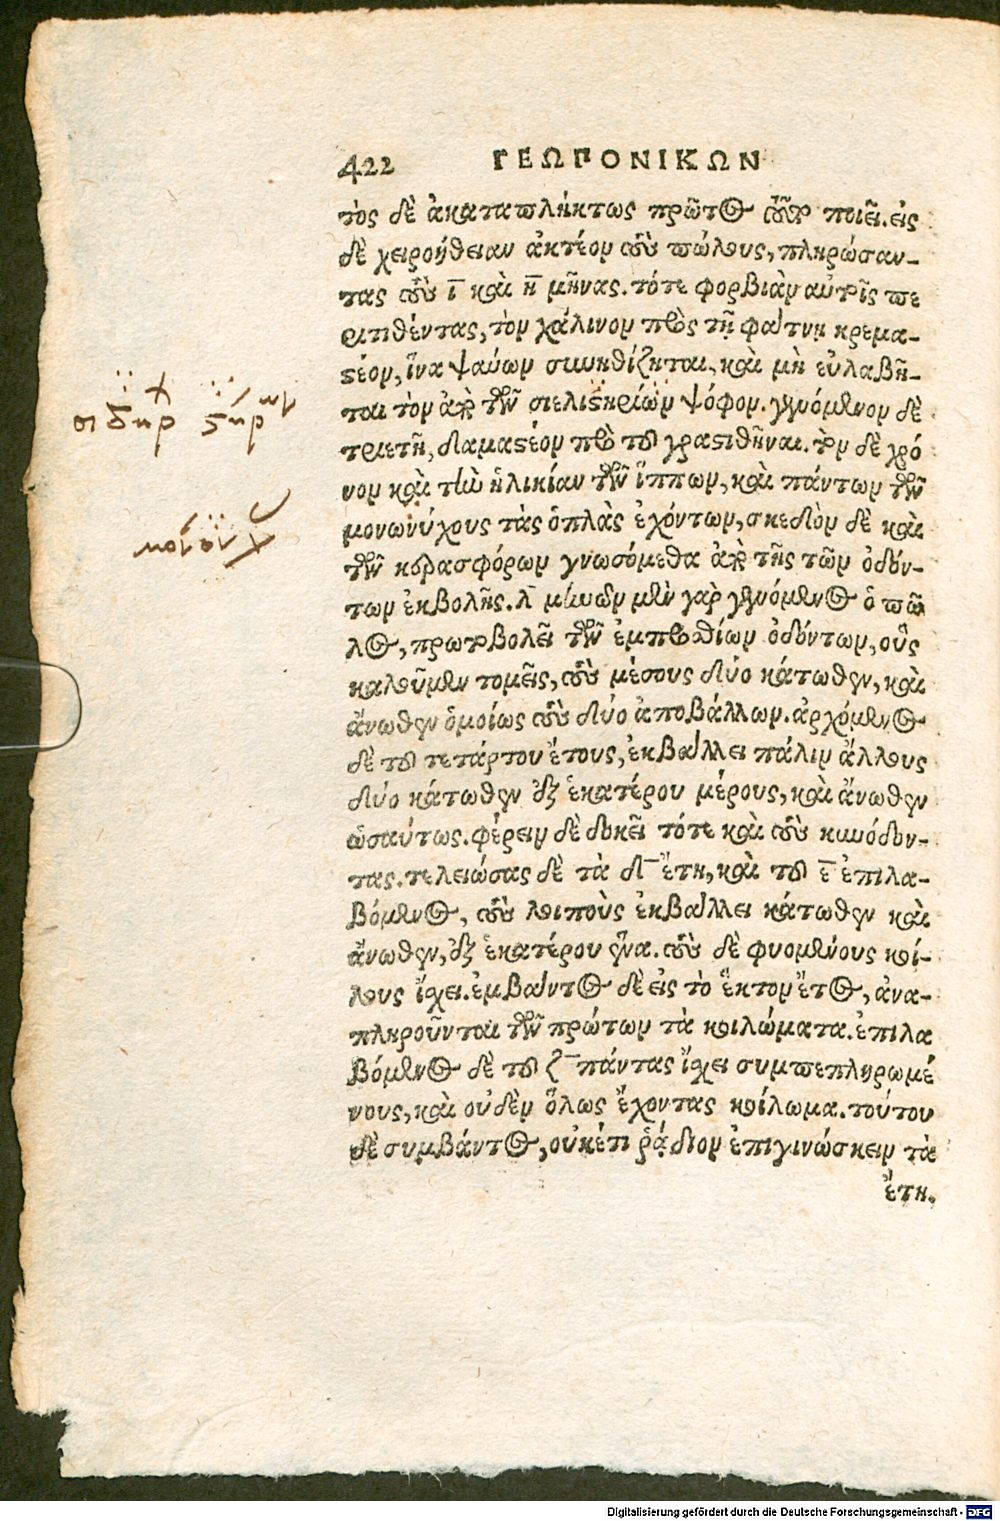 422 ΓΕΩΠΟΝΙΚΩΝ
τὸς δὲ ἀκαταπλήκτως πρῶτος τοῦτο ποιεῖ. εἰς
δὲ χειροήθειαν ἀκτέον τοὺς πώλους, πληρώσαν-
τας τοὺς ι̅ καὶ η̅ μῆνας. τότε φορβιὰν αὐτοῖς πε
ριτιθέντας, τὸν χάλινον πρὸς τῇ φάτνῃ κρεμα-
στέον, ἵνα ψαύων συνηθίζηται, καὶ μὴ εὐλαβῆ-
ται τὸν ἀπὸ τῶν σιελιστηρίων ψόφον. γενόμενον δὲ
τριετῆ, δαμαστέον πρὸ τοῦ γραστισθῆναι. τὸν δὲ χρό
νον καὶ τὴν ἡλικίαν τῶν ἵππων, καὶ πάντων τῶν
μονωνύχους τὰς ὁπλὰς ἐχόντων, σχεδὸν δὲ καὶ
τῶν κερασφόρων γνωσόμεθα ἀπὸ τῆς τῶν ὀδόν-
των ἐκβολῆς. λ̅ μηνῶν μὲν γὰρ γενόμενος ὁ πῶ
λος, πρωτοβολεῖ τῶν ἐμπροσθίων ὀδόντων, οὓς
καλοῦμεν τομεῖς, τοὺς μέσους δύο κάτωθεν, καὶ
ἄνωθεν ὁμοίως τοὺς δύο ἀποβάλλων. ἀρχόμενος
δὲ τοῦ τετάρτου ἔτους, ἐκβάλλει πάλιν ἄλλους
δύο κάτωθεν ἐξ ἑκατέρου μέρους, καὶ ἄνωθεν
ὡσαύτως. φέρειν δὲ δοκεῖ τότε καὶ τοὺς κυνόδον-
τας. τελειώσας δὲ τὰ δ̅ ἔτη, καὶ τοῦ ε̅ ἐπιλα-
βόμενος, τοὺς λοιποὺς ἐκβάλλει κάτωθεν καὶ
ἄνωθεν, ἐξ ἑκατέρου ἕνα. τοὺς δὲ φυομένους κοί-
λους ἴχει. ἐμβάντος δὲ εἰς τὸ ἕκτον ἔτος, ἀνα-
πληροῦνται τῶν πρώτων τὰ κοιλώματα. ἐπιλα
βόμενος δὲ τοῦ ζ̅ πάντας ἴχει συμπεπληρωμέ
νους, καὶ οὐδὲν ὅλως ἔχοντας κοίλωμα. τούτου
δὲ συμβάντος, οὐκέτι ῥᾴδιον ἐπιγινώσκειν τὰ
ἔτη.
Digitalisierung gefördert durch die Deutsche Forschungsgemeinschaft - DFG